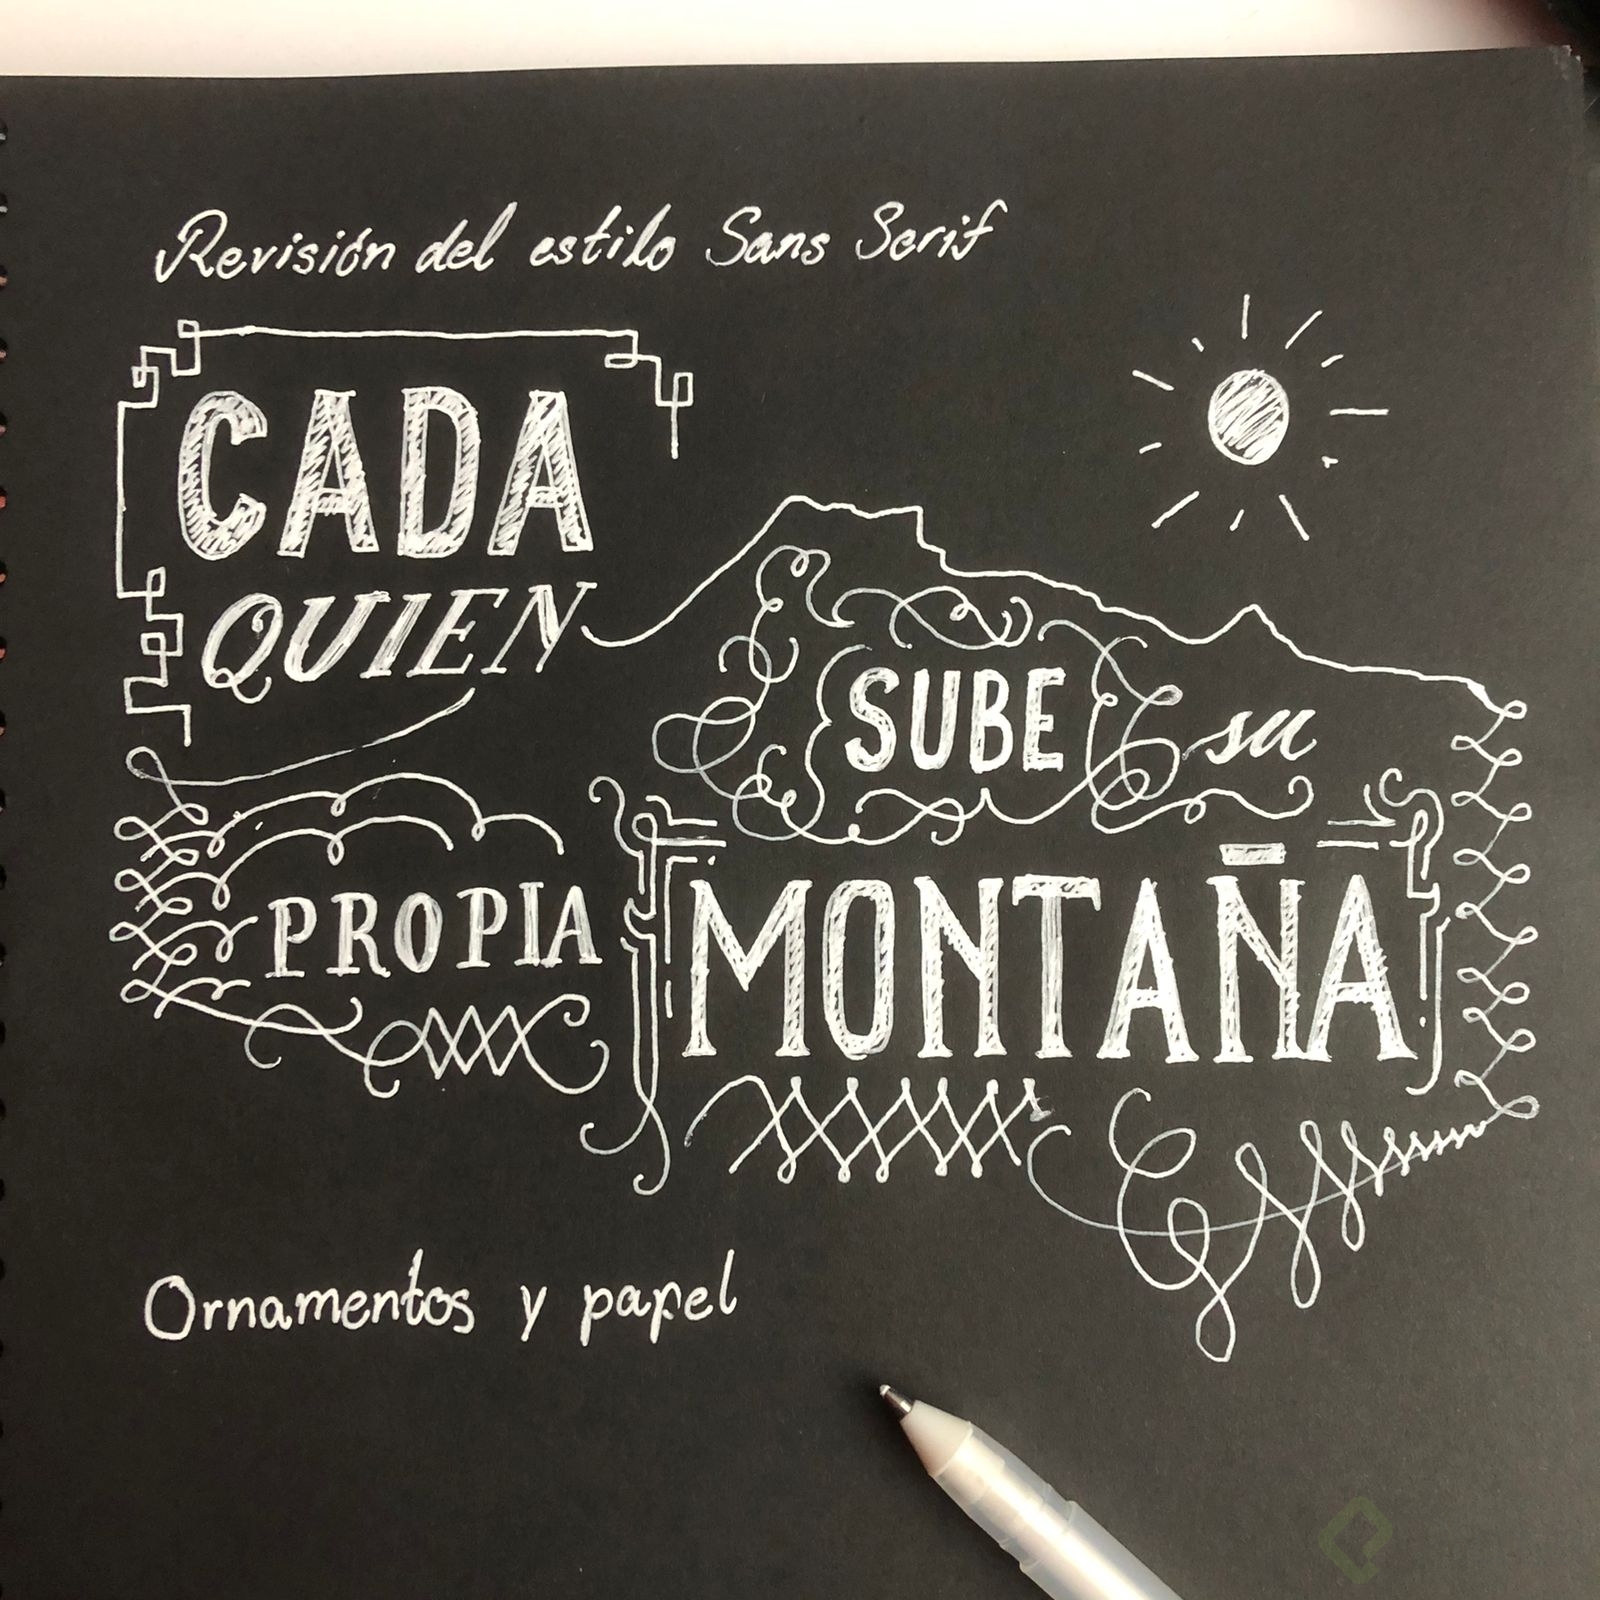 Revisión del estilo Sans Serif
CADA
QUIEN
SUBE su
PROPIA
MONTAÑA
Ornamentos y papel